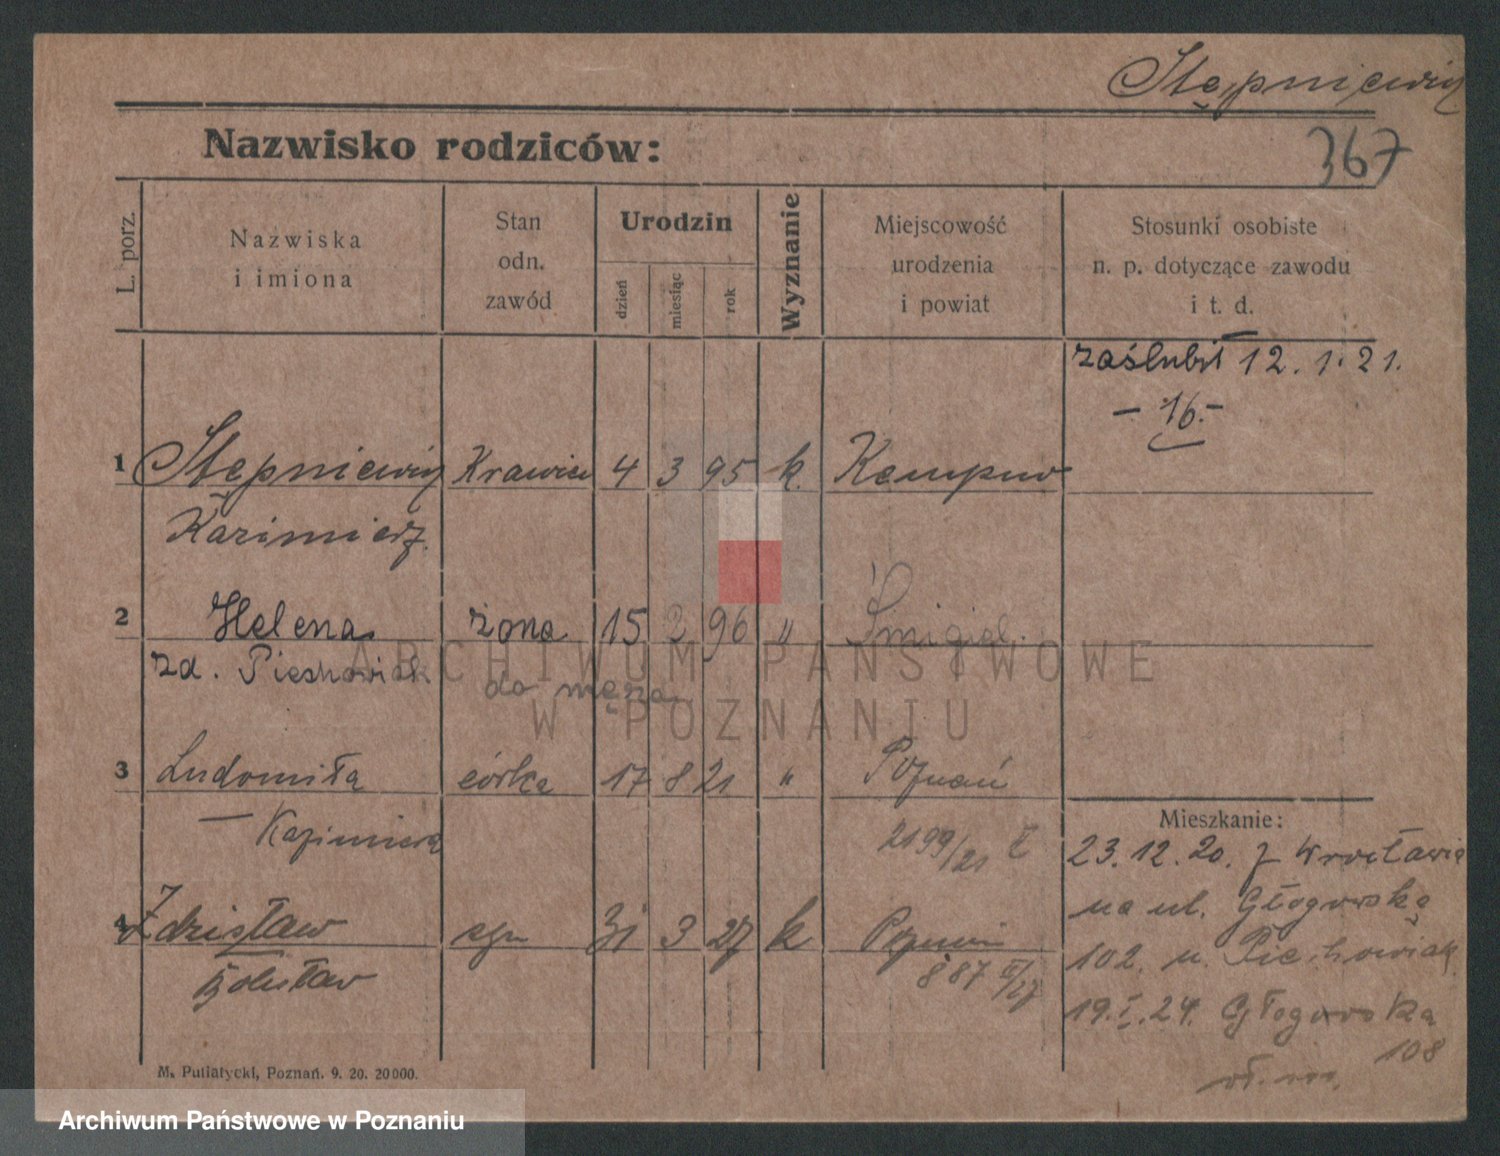 Stępniewicz
367
Nazwisko rodziców:
L. porz.
Nazwiska
i imiona
Stan
odn.
zawód
Urodzin
dzień
miesiąc
rok
Wyznanie
Miejscowość
urodzenia
i powiat
Stosunki osobiste
n. p. dotyczące zawodu
i t. d.
zaślubił 12.1.21.
- 16. -
1 Stępniewicz Krawiec 4 3 95 k. Kempno
Kazimierz.
2 Helena żona 15 2 96 " Śmigiel.
zd. Piechowiak do męża
3 Ludomiła córka 17 8 21 " Poznań
— Kazimiera 2199/21
4 Zdzisław syn 31 3 27 k Poznań
Bolesław 887 II/27
Mieszkanie:
23.12.20. z Wrocławia
na ul. Głogowską
102. u. Piechowiak
19.I.24. Głogowska
108
M. Putiatycki, Poznań. 9. 20. 20000.
ARCHIWUM PAŃSTWOWE
W POZNANIU
Archiwum Państwowe w Poznaniu